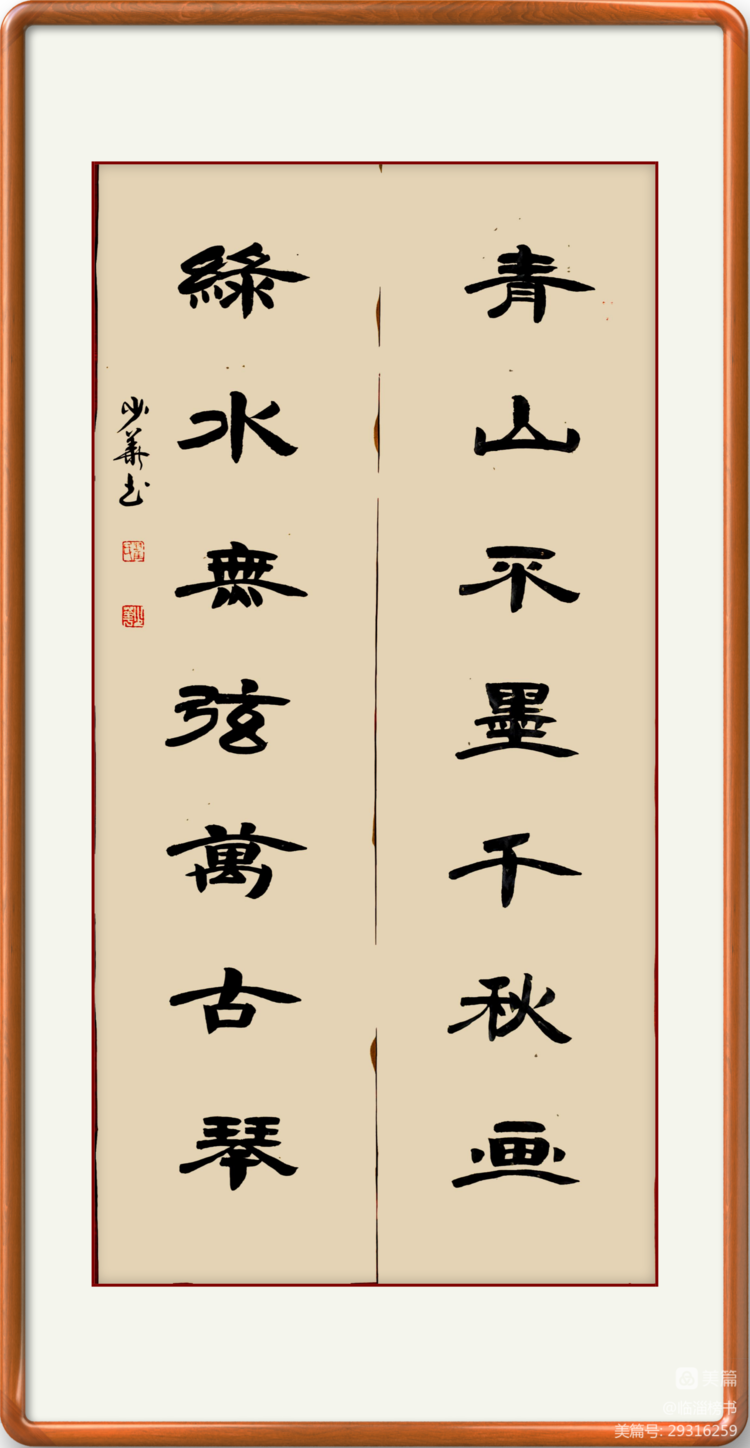 青山不墨千秋画
綠水無弦萬古琴
少華书
美篇
美篇号: 29316259